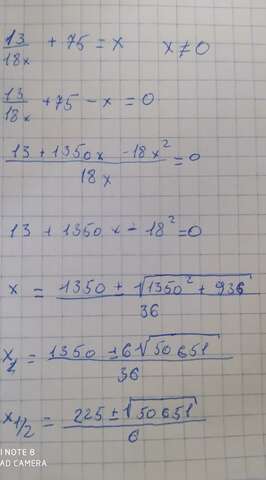 13/18x + 75 = x x ≠ 0
13/18x + 75 - x = 0
13 + 1350x - 18x²/18x = 0
13 + 1350x - 18² = 0
x = 1350 ± √1350² + 936/36
x₁ = 1350 ± 6√50651/36
x₁/₂ = 225 ± √50651/6
I NOTE 8
AD CAMERA